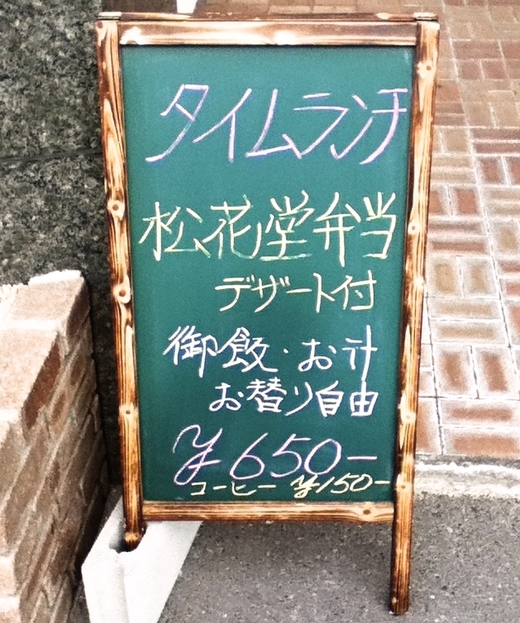 タイムランチ
松花堂弁当
デザート付
御飯・お汁
お替り自由
¥650-
コーヒー ¥150-